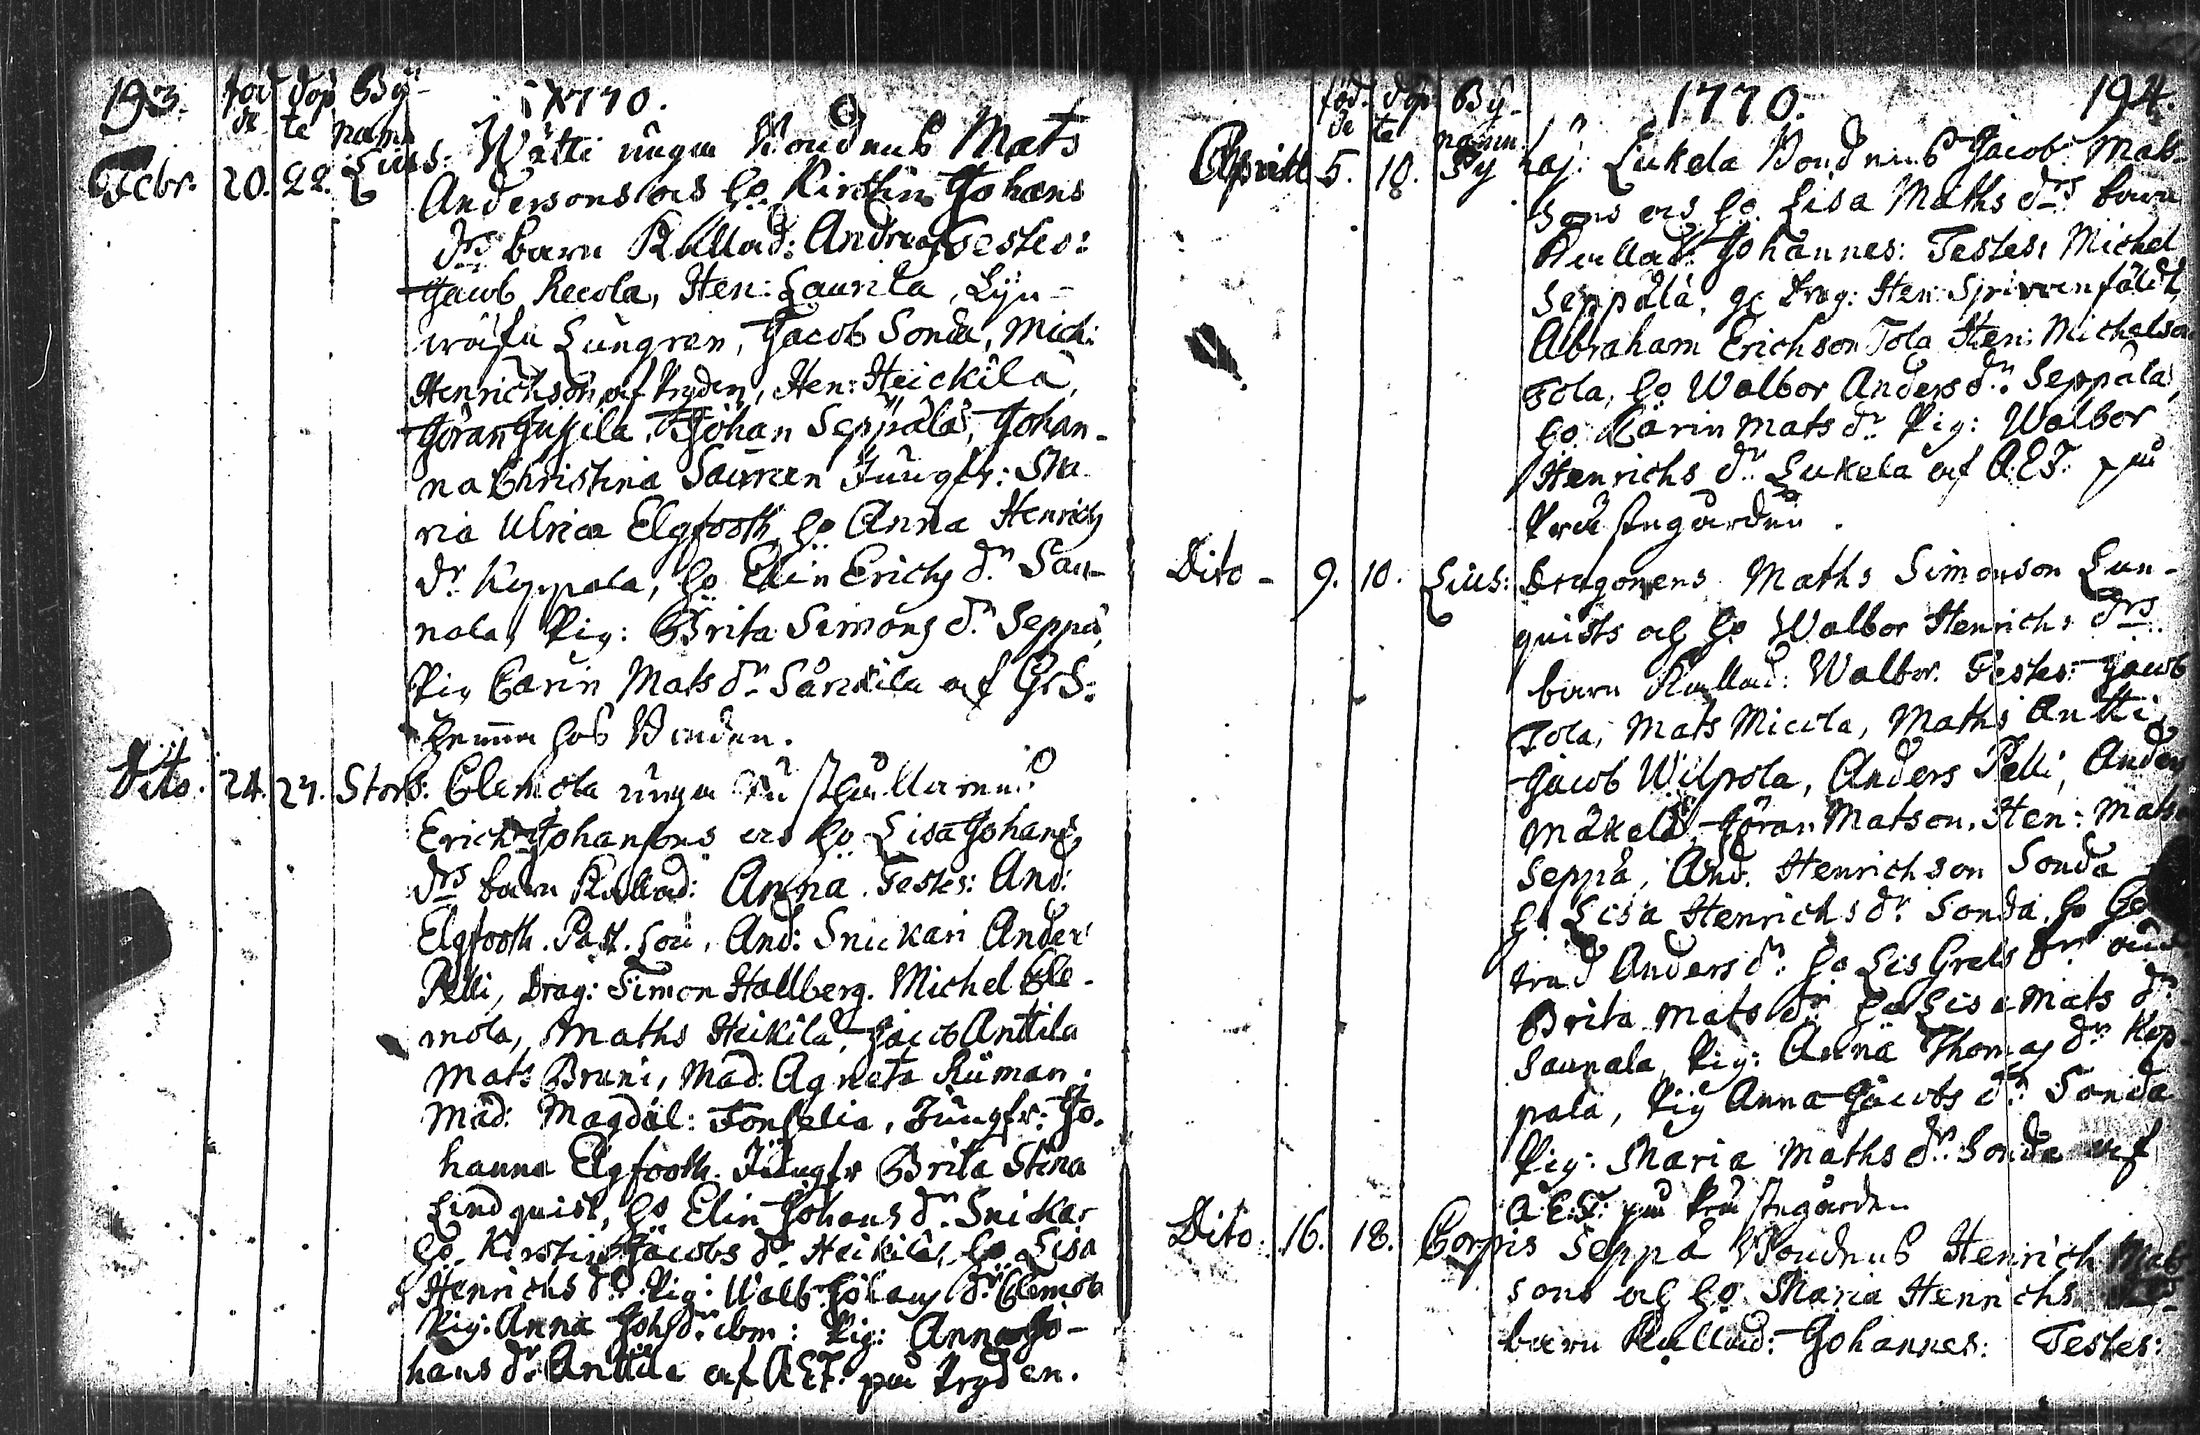 193. föd döp By- 1770.
de te namn
Febr. 20. 22. Lius: Wätti unga Bondens Mats
Andersons och ho Kirstin Johans
drs barn Kallad: Andreas Testes:
Jacob Recola, Hen: Laurila, Län-
Lungren, Jacob Sonda, Mich:
Henrichson af Pryden, Hen: Heickilä,
Göran Jussila, Johan Seppälä, Johan-
na Christina Jungfr: Ma
ria Ulrica Elgfooth, ho Anna Henrichs
dr Kyppala, ho Elin Erichs dr Sau-
nala, Pig: Brita Simons dr Seppä,
Pig Carin Mats dr Särkilä af
hemma hos Bonden.
Dito. 24. 27. Storb: Clemola unga
Erich Johansons och ho Lisa Johans
drs barn Kallad: Anna. Testes: And:
Elgfooth. Past. Loci, And: Snickari Anders
Pelli, Drag: Simon Hallberg. Michel Cle-
mola, Maths Heikilä, Jacob Anttila
Mats Bruni, Mad: Agneta Ruman.
Mad: Magdal: Fonselia, Jungfr: Jo-
hanna Elgfooth. Jungfr Brita Stina
Lindquist, ho Elin Johans dr Snickar
ho Kirstin Jacobs dr Heikilä, ho Lisa
Henrichs dr Pig: Walb: Johans dr Clemola
Pig: Anna Joh: dr ibm: Pig: Anna Jo-
hans dr Anttila af AEF. på Pryden.
föd döp By- 1770. 194.
de te namn
Aprill 5. 18. Py haj: Lukela Bondens Jacob Mats
sons och ho Lisa Maths drs barn
Kallad: Johannes: Testes: Michel
Seppälä, Drag: Hen: Sprivvenfäldt,
Abraham Erichson Tola Hen: Michelson
Tola, ho Walbor Anders dr Seppälä,
ho Karin Mats dr Pig: Walbor
Henrichs dr Lukela af A.E.F. på
Prästegården.
Dito - 9. 10. Lius: Dragonens Maths Simonson Lun-
quists och ho Walbor Henrichs drs
barn Kallad: Walbor. Testes: Jacob
Tola, Mats Micola, Maths Antti,
Jacob Wilpola, Anders Pelli, Anders
Mäkelä, Göran Matson, Hen: Mats
Seppä, And. Henrichson Sonda
ho Lisa Henrichs dr Sonda, ho Ger
trud Anders dr ho Lis Grels dr
Brita Mats dr ho Lisa Mats dr
Saunala, Pig: Anna Thomas dr Kop-
pala, Pig Anna Jacobs dr Sonda
Pig: Maria Maths dr Sonda af
A.E.F. på Prästegården
Dito. 16. 18. Corpis Seppä Bondens Henrich Mats
sons och ho Maria Henrichs drs
barn Kallad: Johannes: Testes: